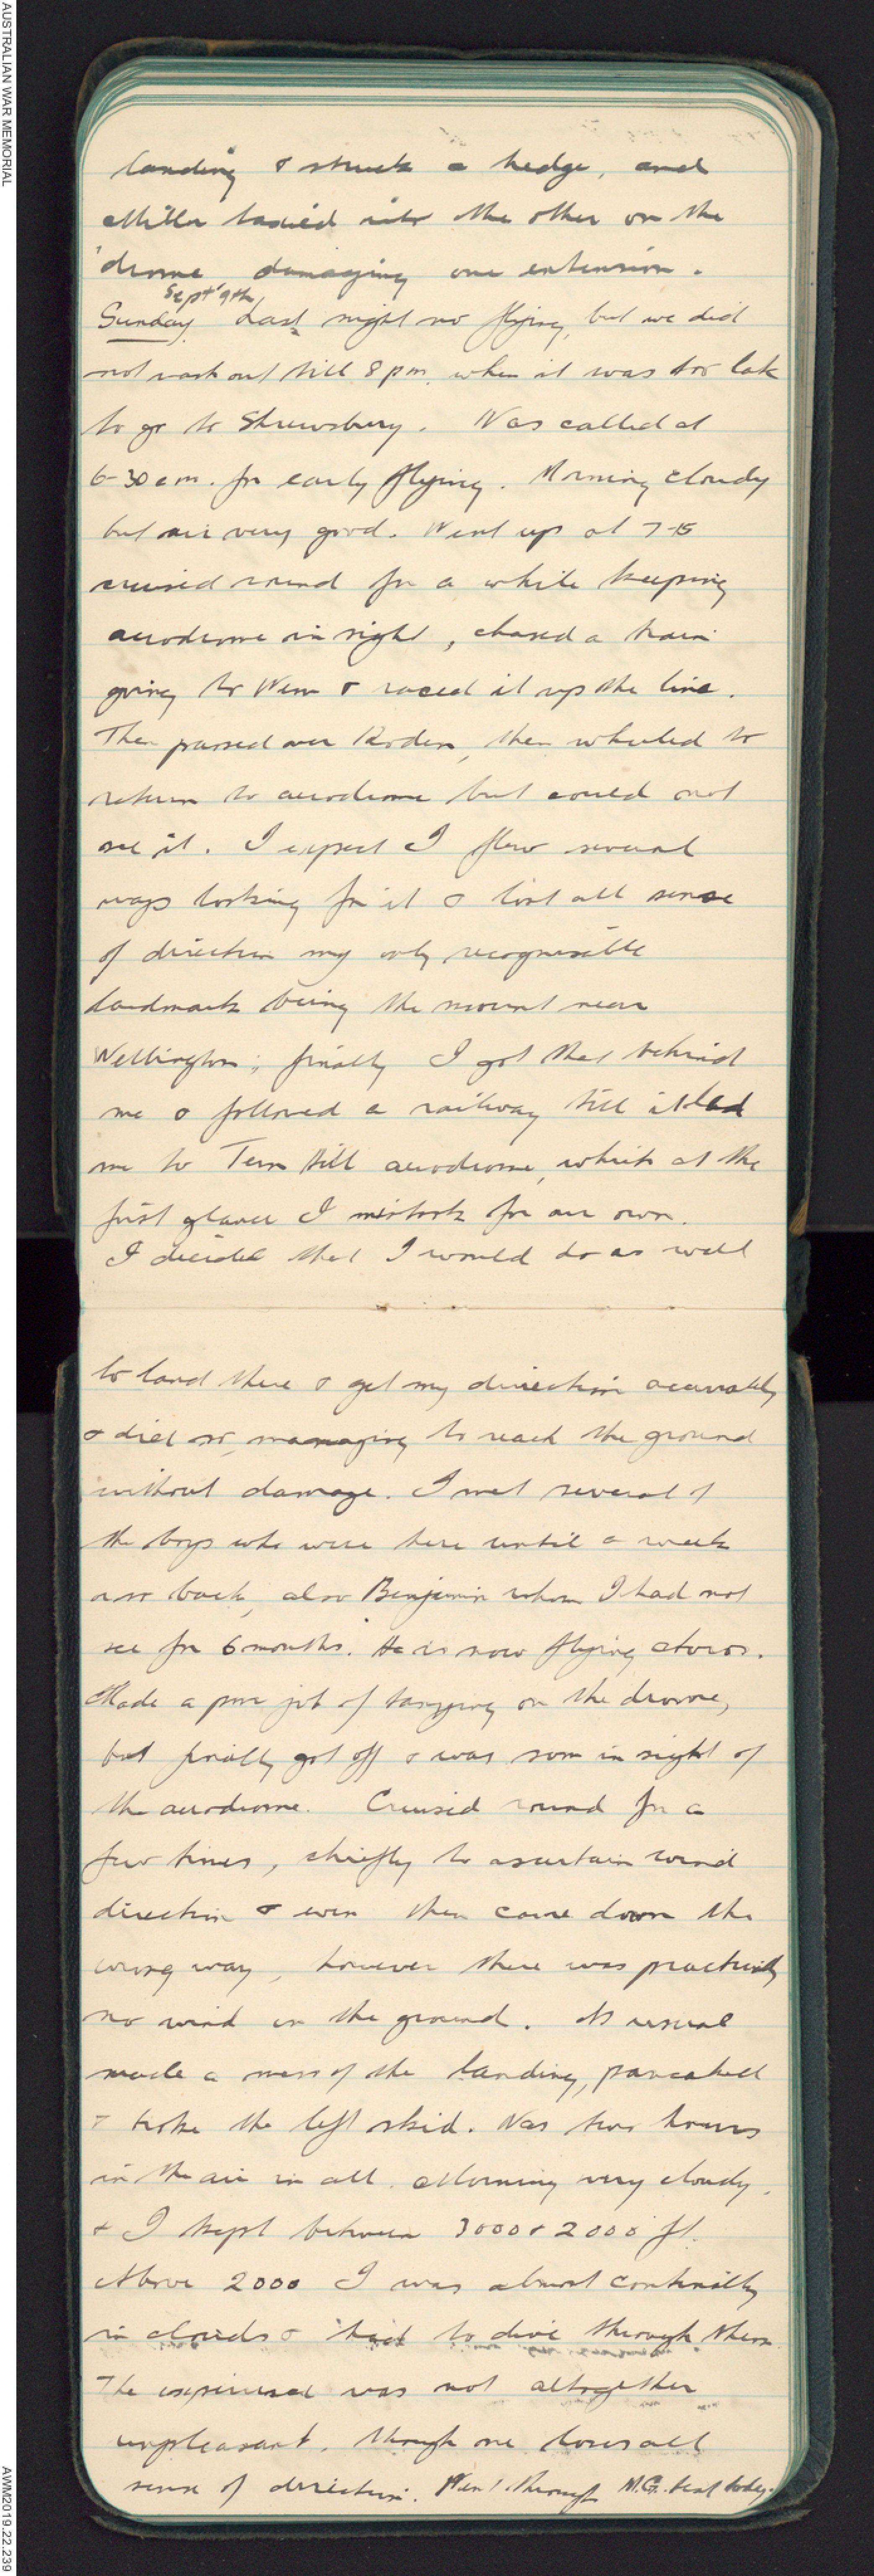 AUSTRALIAN WAR MEMORIAL
landing & struck a hedge, and
Miller taxied into the other on the
'drome damaging one extension.
Sept 9th
Sunday. Last night no flying, but we did
not wash out till 8 pm. when it was too late
to go to Shrewsbury. Was called at
6-30 am. for early flying. Morning cloudy
but air very good. Went up at 7-15
cruised round for a while keeping
aerodrome in sight, chased a train
going to Wem & raced it up the line.
Then passed over Roden, then wheeled to
return to aerodrome but could not
see it. I expect I flew several
ways looking for it & lost all sense
of direction my only recognisable
landmark being the mount near
Wellington; finally I got that behind
me & followed a railway till it led
me to Tern Hill aerodrome, which at the
first glance I mistook for our own.
I decided that I would do as well
to land there & get my direction accurately
& did so, managing to reach the ground
without damage. I met several of
the boys who were here until a week
or so back, also Benjamin whom I had not
see for 6 months. He is now flying Avros.
Made a poor job of taxying on the drome,
but finally got off & was soon in sight of
the aerodrome. Cruised round for a
few times, chiefly to ascertain wind
direction & even then came down the
wrong way, however there was practically
no wind on the ground. As usual
made a mess of the landing, pancaked
& broke the left skid. Was two hours
in the air in all. Morning very cloudy,
& I kept between 3000 & 2000 ft.
Above 2000 I was almost continally
in clouds & had to dive through them.
The experience was not altogether
unpleasant, though one loses all
sense of direction. Went through M.G. test today.
AWM2019.22.239